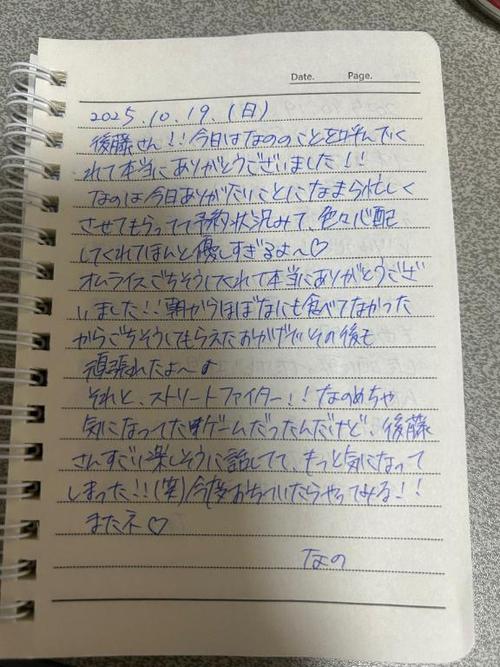 Date. Page.
2025.10.19.(日)
後藤さん!!今日はなののことを呼んでく
れて本当にありがとうございました!!
なのは今日ありがたいことになまら忙しく
させてもらってて予約状況みて、色々心配
してくれてほんと優しすぎるよ〜♡
オムライスごちそうしてくれて本当にありがとうござ
いました!!朝からほぼなにも食べてなかった
からごちそうしてもらえたおかげでその後も
頑張れたよ〜♪
それと、ストリートファイター!!なのめちゃ
気になってたゲームだったんだけど、後藤
さんすごい楽しそうに話してて、もっと気になって
しまった!!(笑)今度おちついたらやってみる!!
またネ♡
なの